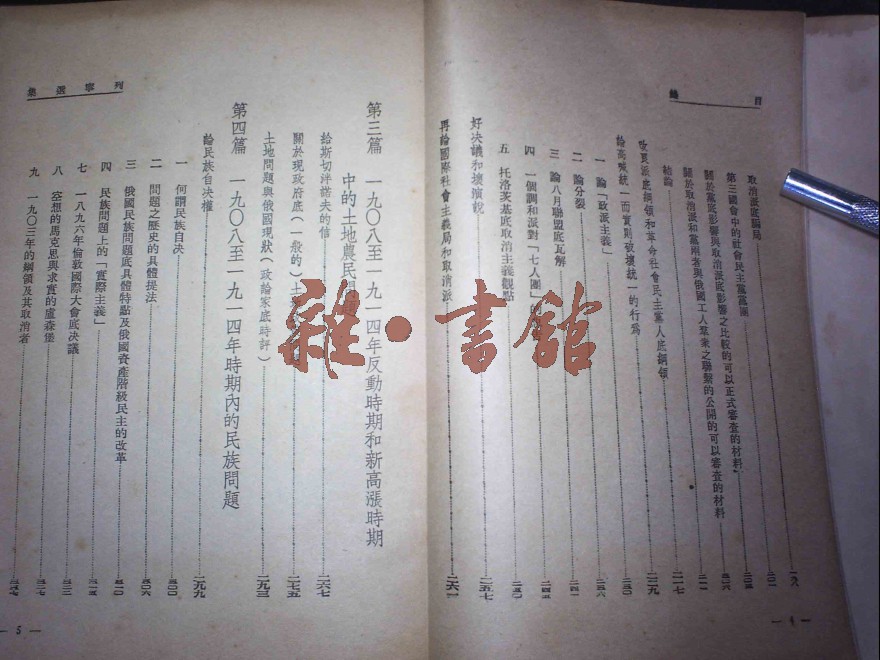 目錄
取消派底騙局 一九八
第三國會中的社會民主黨黨團 二〇二
關於黨底影響與取消派底影響之比較的可以正式審查的材料 二〇五
關於取消派和黨兩者與俄國工人羣衆之聯繫的公開的可以審查的材料 二一一
結論 二一七
改頁派底綱領和革命社會民主黨人底綱領 二一九
論高喊統一而實則破壞統一的行爲 二三〇
一 論「政派主義」
二 論分裂 二四一
三 論八月聯盟底瓦解 二四五
四 一個調和派對「七人團」
五 托洛茨基底取消主義觀點
好決議和壞演說 二五七
再論國際社會主義局和取消派 二六一
— 4 —
列寧選集
第三篇 一九〇八至一九一四年反動時期和新高漲時期
中的土地農民問題
給斯切坪諾夫的信 二六七
關於現政府底(一般的)土
二七五
土地問題與俄國現狀(政論家底時評) 二九三
第四篇 一九〇八至一九一四年時期內的民族問題
論民族自決權 二九九
一 何謂民族自決 三〇〇
二 問題之歷史的具體提法 三〇六
三 俄國民族問題底具體特點及俄國資產階級民主的改革 三一〇
四 民族問題上的「實際主義」 三一五
七 一八九六年倫敦國際大會底决議 三三三
八 空想的馬克思與求實的盧森堡 三三七
九 一九〇三年的綱領及其取消者
— 5 —
雜·書館